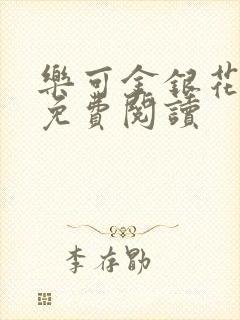 樂可金銀花
免費閱讀
李存勖